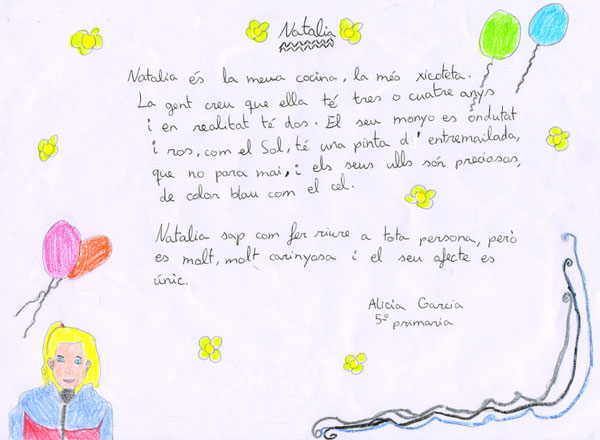 Natalia
Natalia és la meua cocina, la més xicoteta.
La gent creu que ella té tres o cuatre anys
i en realitat té dos. El seu monyo es ondutat
i ros, com el Sol, té una pinta d'entremailada,
que no para mai, i els seus ulls són preciosos,
de color blau com el cel.
Natalia sap com fer riure a tota persona, però
es molt, molt carinyosa i el seu afecte es
únic.
Alicia Garcia
5º primaria